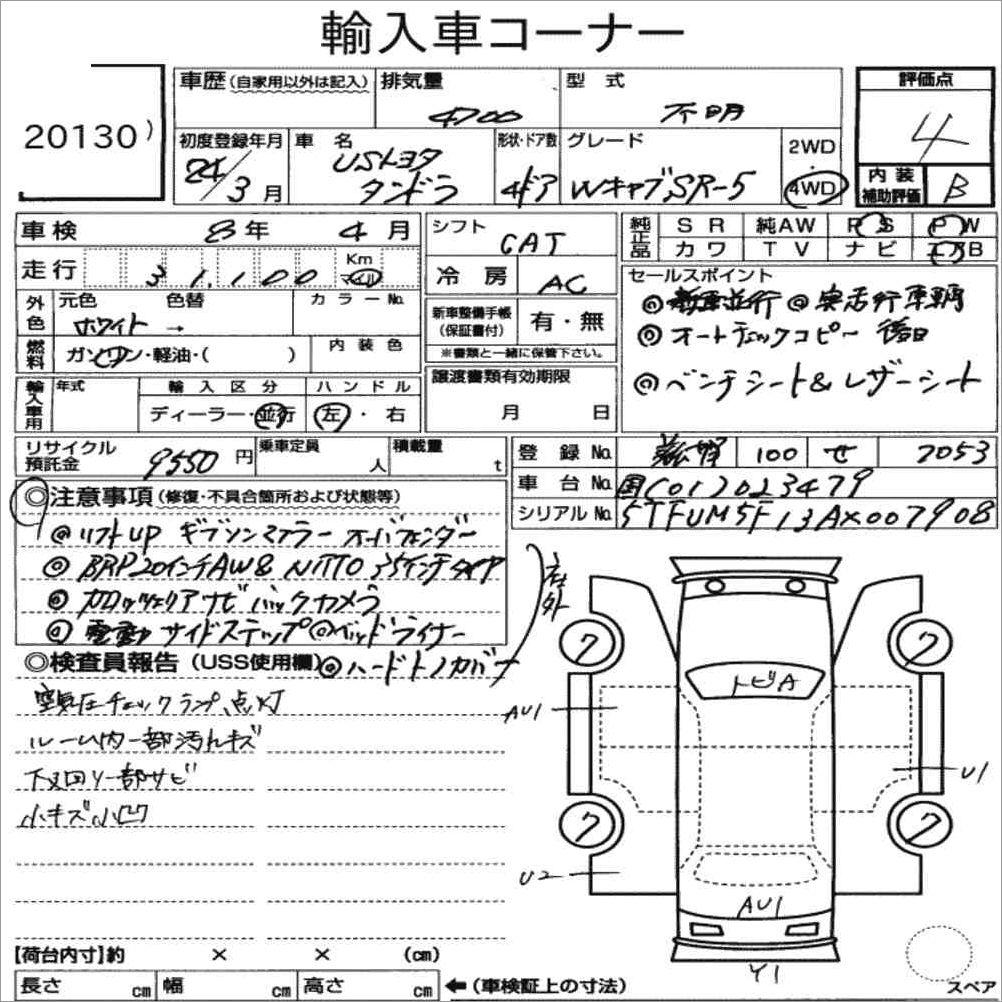 輸入車コーナー
20130)
車歴(自家用以外は記入) 排気量 4700 型式 不明
初度登録年月 24/3月 車名 USトヨタ タンドラ 形状・ドア数 4ドア グレード Wキャブ SR-5 2WD・4WD
評価点 4
内装補助評価 B
車検 8年 4月
走行 31,100 Km マイル
外色 元色 ホワイト → 色替 カラーNo.
燃料 ガソリン・軽油・( ) 内装色
輸入車用 年式 輸入区分 ディーラー・並行 ハンドル 左・右
シフト CAT
冷房 AC
新車整備手帳(保証書付) 有・無
※書類と一緒に保管下さい。
譲渡書類有効期限
月 日
純正品 SR 純AW PS PW
カワ TV ナビ エアB
セールスポイント
◎新車並行 ◎実走行車輌
◎オートチェックコピー 後日
◎ベンチシート&レザーシート
リサイクル預託金 9550円 乗車定員 人 積載量 t
登録No. 滋賀 100 せ 7053
車台No. 国C012023479
シリアルNo. 5TFUM5F13AX007908
◎注意事項(修復・不具合箇所および状態等)
◎リフトUP ギブソンマフラー オーバーフェンダー
◎BRP20インチAW& NITTO 35インチタイヤ
◎カロッツェリアナビ バックカメラ
◎電動サイドステップ ◎ベッドライナー
◎ハードトノカバー
社外
◎検査員報告(USS使用欄)
空気圧チェックランプ点灯
ルーム内一部汚れキズ
下回り一部サビ
小キズ小凹
ワ ワ
トビA
AU1
U1
ワ ワ
U2
AU1
Y1
スペア
【荷台内寸】約 × × (cm)
長さ cm 幅 cm 高さ cm ←(車検証上の寸法)